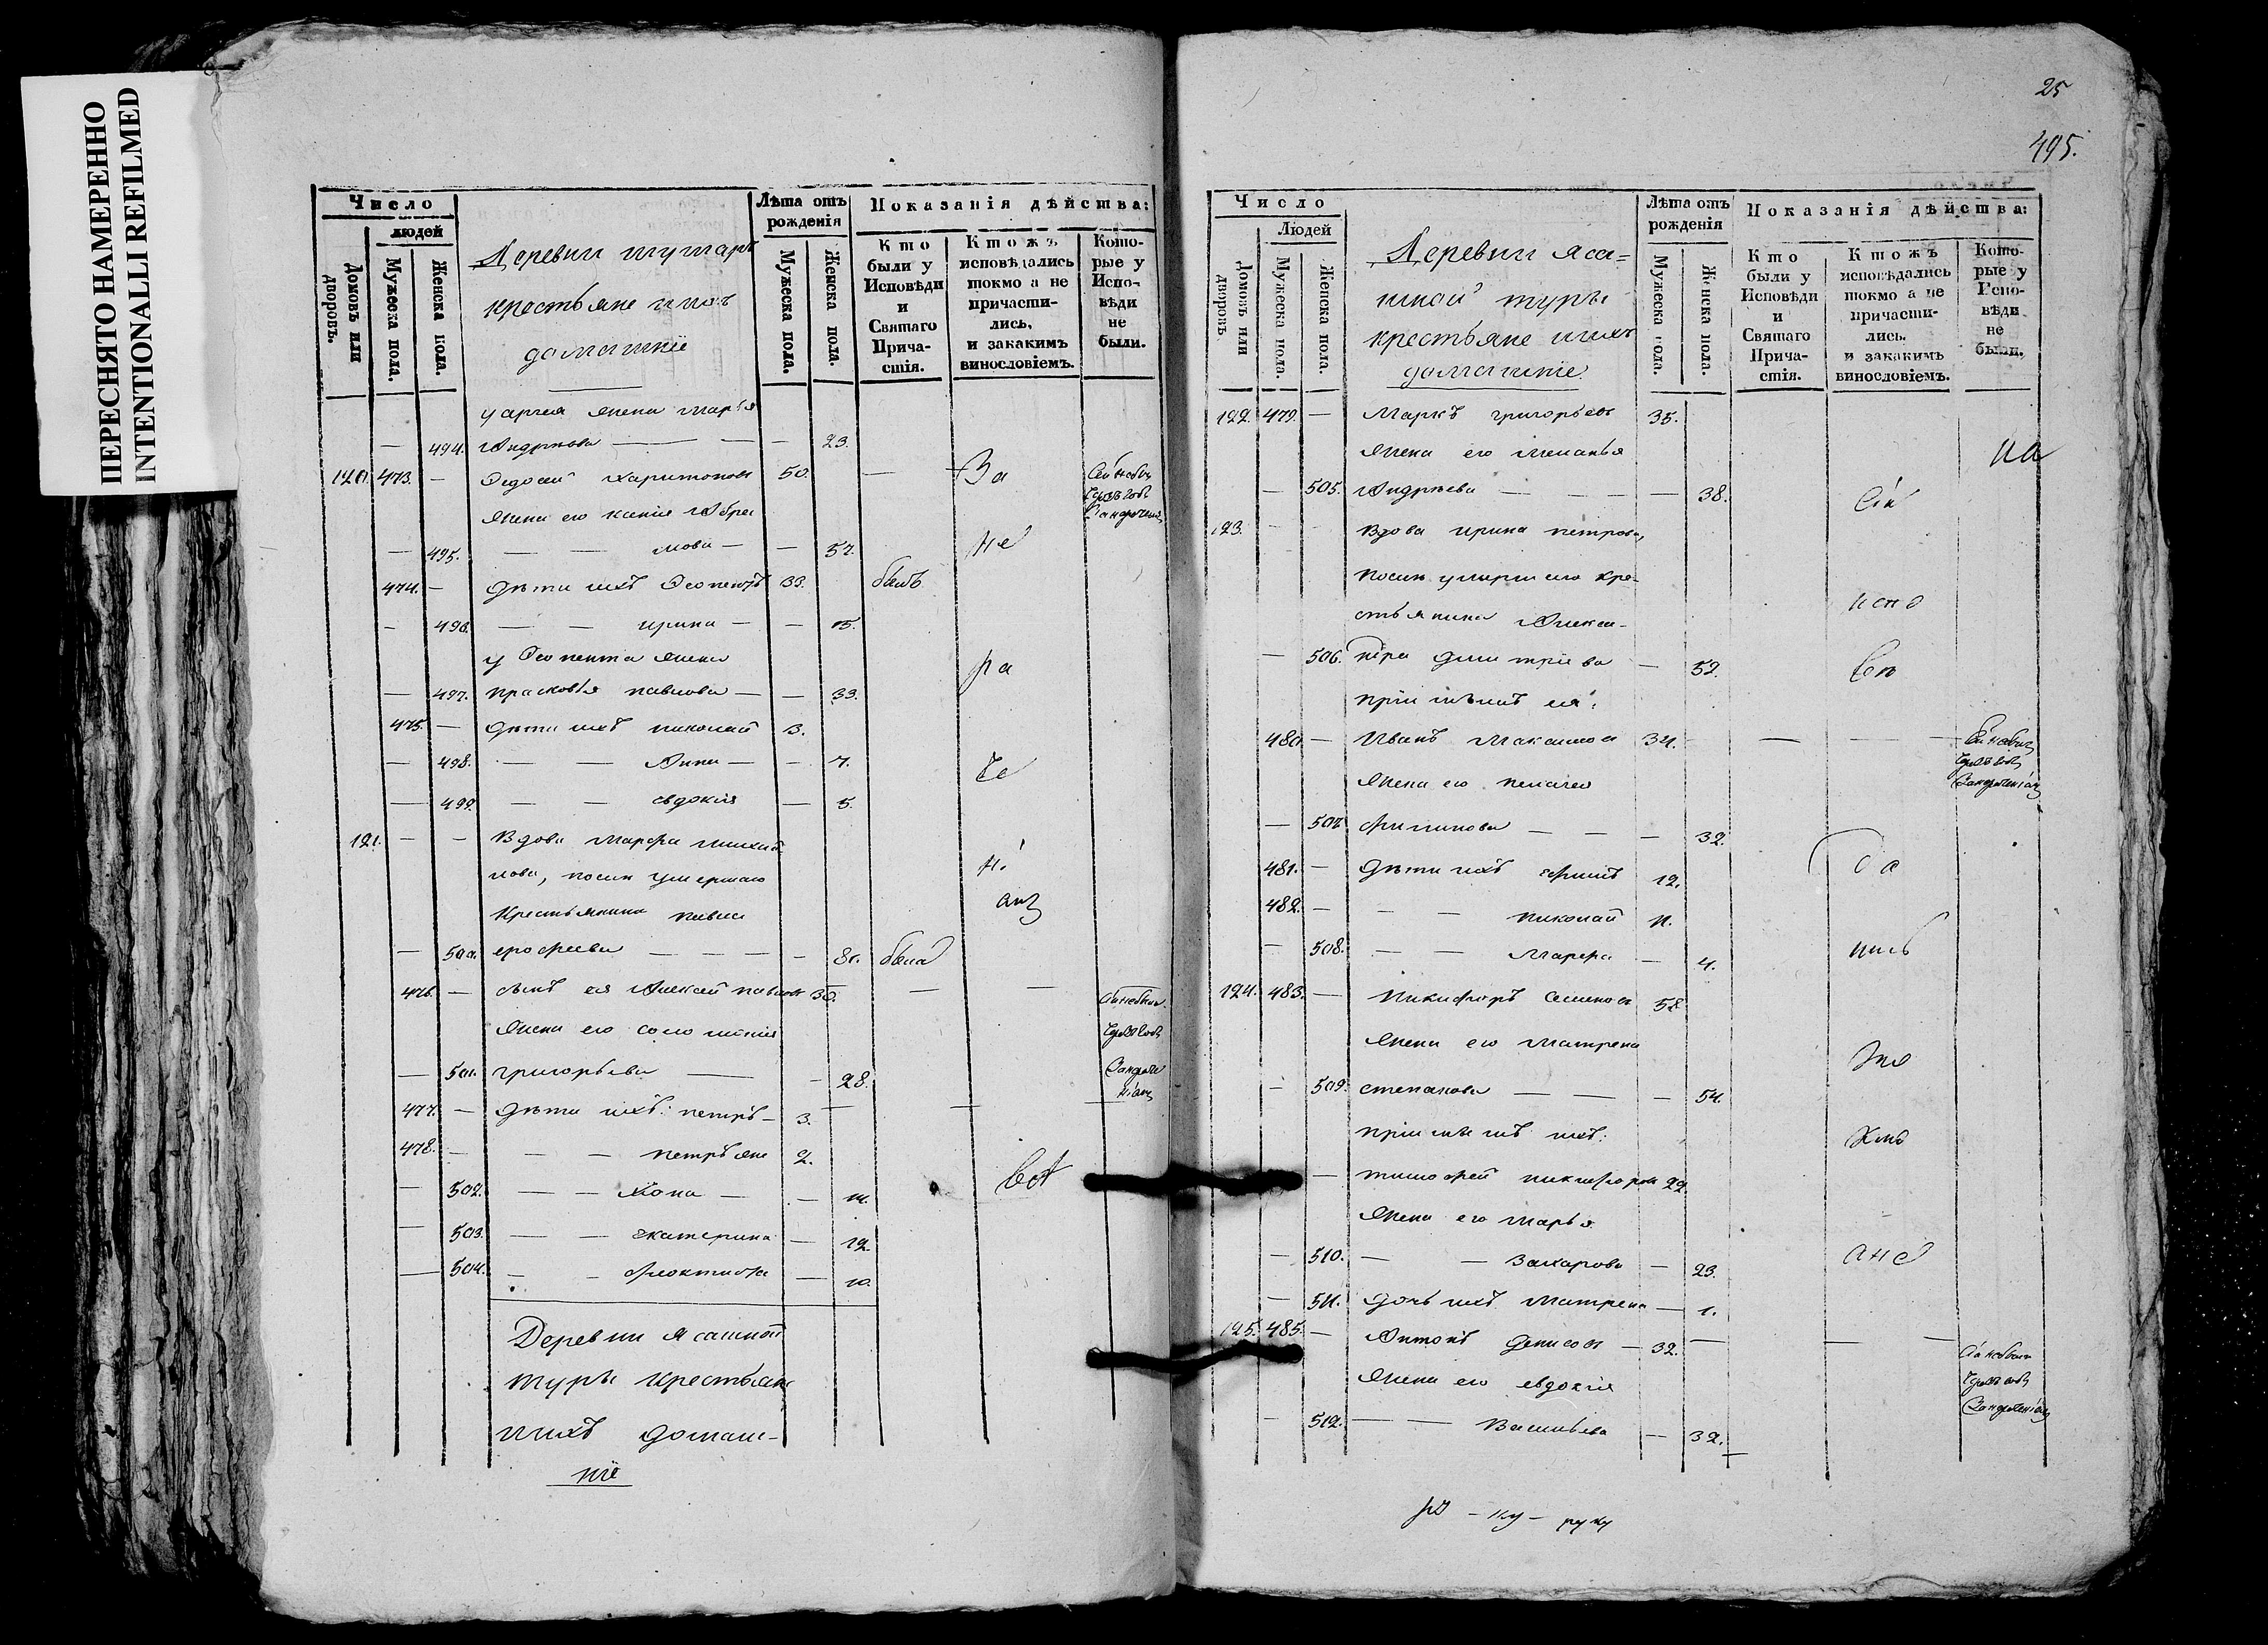 ПЕРЕСНЯТО НАМЕРЕННО
INTENTIONALLI REFILMED
Число
людей
Домовъ или дворовъ.
Мужеска пола.
Женска пола.
Деревни
крестьяне ихъ
домашніе
Лѣта отъ рожденія
Мужеска пола.
Женска пола.
Показанія дѣйства:
Кто были у Исповѣди и Святаго Причастія.
Ктожъ исповѣдались токмо а не причастились, и закакимъ винословіемъ.
Которые у Исповѣди не были.
жена Марья
494. Андреева — 23.
120. 473. — Федосей Харитоновъ 50. — За
жена его Ксенія Абра
— 495. — мова — 57. не
474. — дѣти ихъ Феопентъ 33. былъ
— 496. — Ирина — 15.
у Феопента жена
— 497. Прасковья Павлова — 33. ра
475. — дѣти ихъ Николай 3.
— 498. — Анна — 7.
— 499. — Евдокія — 5.
121. — — Вдова Марфа Михай
лова, послѣ умершаго
крестьянина Павла
— 500. Ерофеева — 80. была
476. — сынъ ея Алексей Павловъ 30.
жена его Соломонія
— 501. Григорьева — 28.
477. — дѣти ихъ: Петръ — 3.
478. — Петръ же 2.
— 502. — 14.
— 503. — Екатерина — 12.
— 504. — Феоктиста — 10.
Деревни Ясашной
Туры крестьяне
ихъ домаш-
ніе
25
495.
Число
Людей
Домовъ или дворовъ
Мужеска пола.
Женска пола.
Деревни Яса=
шной Туры
крестьяне ихъ
домашніе
Лѣта отъ рожденія
Мужеска пола.
Женска пола.
Показанія дѣйства:
Кто были у Исповѣди и Святаго Причастія.
Ктожъ исповѣдались токмо а не причастились. и закакимъ винословіемъ.
Которые у Исповѣди не были.
122. 479. — Маркъ Григорьевъ 35.
жена его Меланья на
— 505. Андреева — 38. Сіи
123. — Вдова Ирина Петрова,
послѣ умершаго кре-
стьянина Алекса- испо
— 506. Дмитріева — 52.
пріимышъ ея:
480. — Иванъ Максимовъ 34.
жена его Пелагея
— 507. Филипова — 32.
481. — дѣти ихъ Ефимъ 12.
482. — Николай 11.
— 508. — Марфа — 4.
124. 483. — Никифоръ Семеновъ 58.
жена его Матрена
— 509. Степанова — 54.
пріимышъ ихъ:
— Тимофей Никифоровъ 22.
жена его Марья
— 510. — Захарова — 23. а не
— 511. дочь ихъ Матрена — 1.
125. 485. — Антонъ Денисовъ — 32.
жена его Евдокія
— 512. — Васильева — 32.
руку